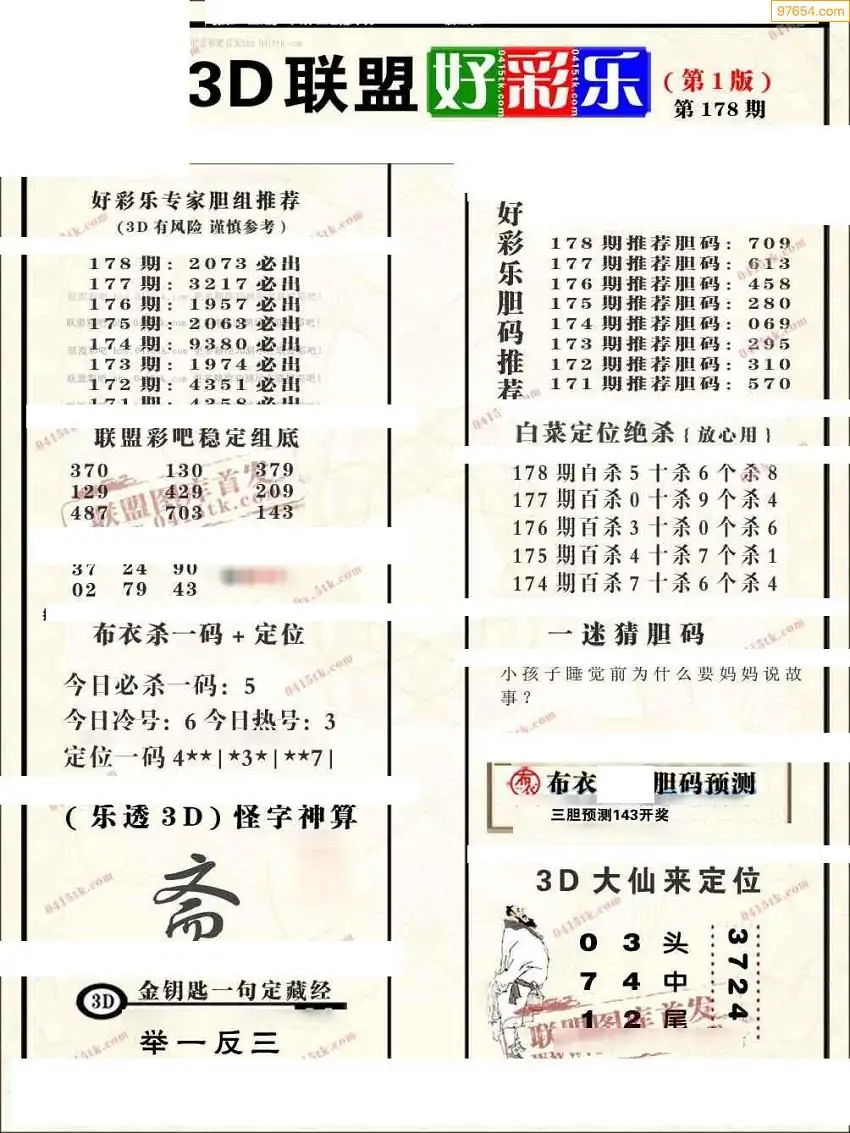 97654.com
3D联盟好彩乐
(第1版)
第178期
好彩乐专家胆组推荐
(3D有风险 谨慎参考)
178期: 2073必出
177期: 3217必出
176期: 1957必出
175期: 2063必出
174期: 9380必出
173期: 1974必出
172期: 4351必出
171期: 4358必出
联盟彩吧稳定组底
370 130 379
129 429 209
487 703 143
37 24 90
02 79 43
布衣杀一码+定位
今日必杀一码: 5
今日冷号: 6 今日热号: 3
定位一码 4**|*3*|**7|
(乐透3D)怪字神算
斋
3D 金钥匙一句定藏经
举一反三
好彩乐胆码推荐
178期推荐胆码: 709
177期推荐胆码: 613
176期推荐胆码: 458
175期推荐胆码: 280
174期推荐胆码: 069
173期推荐胆码: 295
172期推荐胆码: 310
171期推荐胆码: 570
白菜定位绝杀{放心用}
178期百杀5十杀6个杀8
177期百杀0十杀9个杀4
176期百杀3十杀0个杀6
175期百杀4十杀7个杀1
174期百杀7十杀6个杀4
一迷猜胆码
小孩子睡觉前为什么要妈妈说故
事?
布衣 胆码预测
三胆预测143开奖
3D大仙来定位
0 3 头
7 4 中
1 2 尾
3724
联盟图库首发
0415tk.com